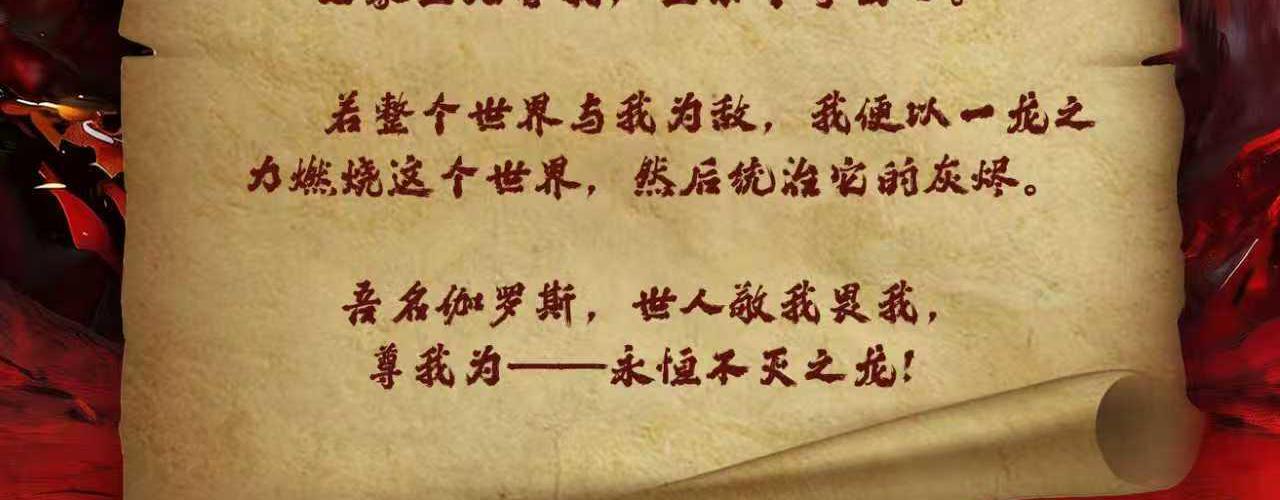 若整个世界与我为敌，我便以一龙之
力燃烧这个世界，然后统治它的灰烬。
吾名伽罗斯，世人敬我畏我，
尊我为——永恒不灭之龙！